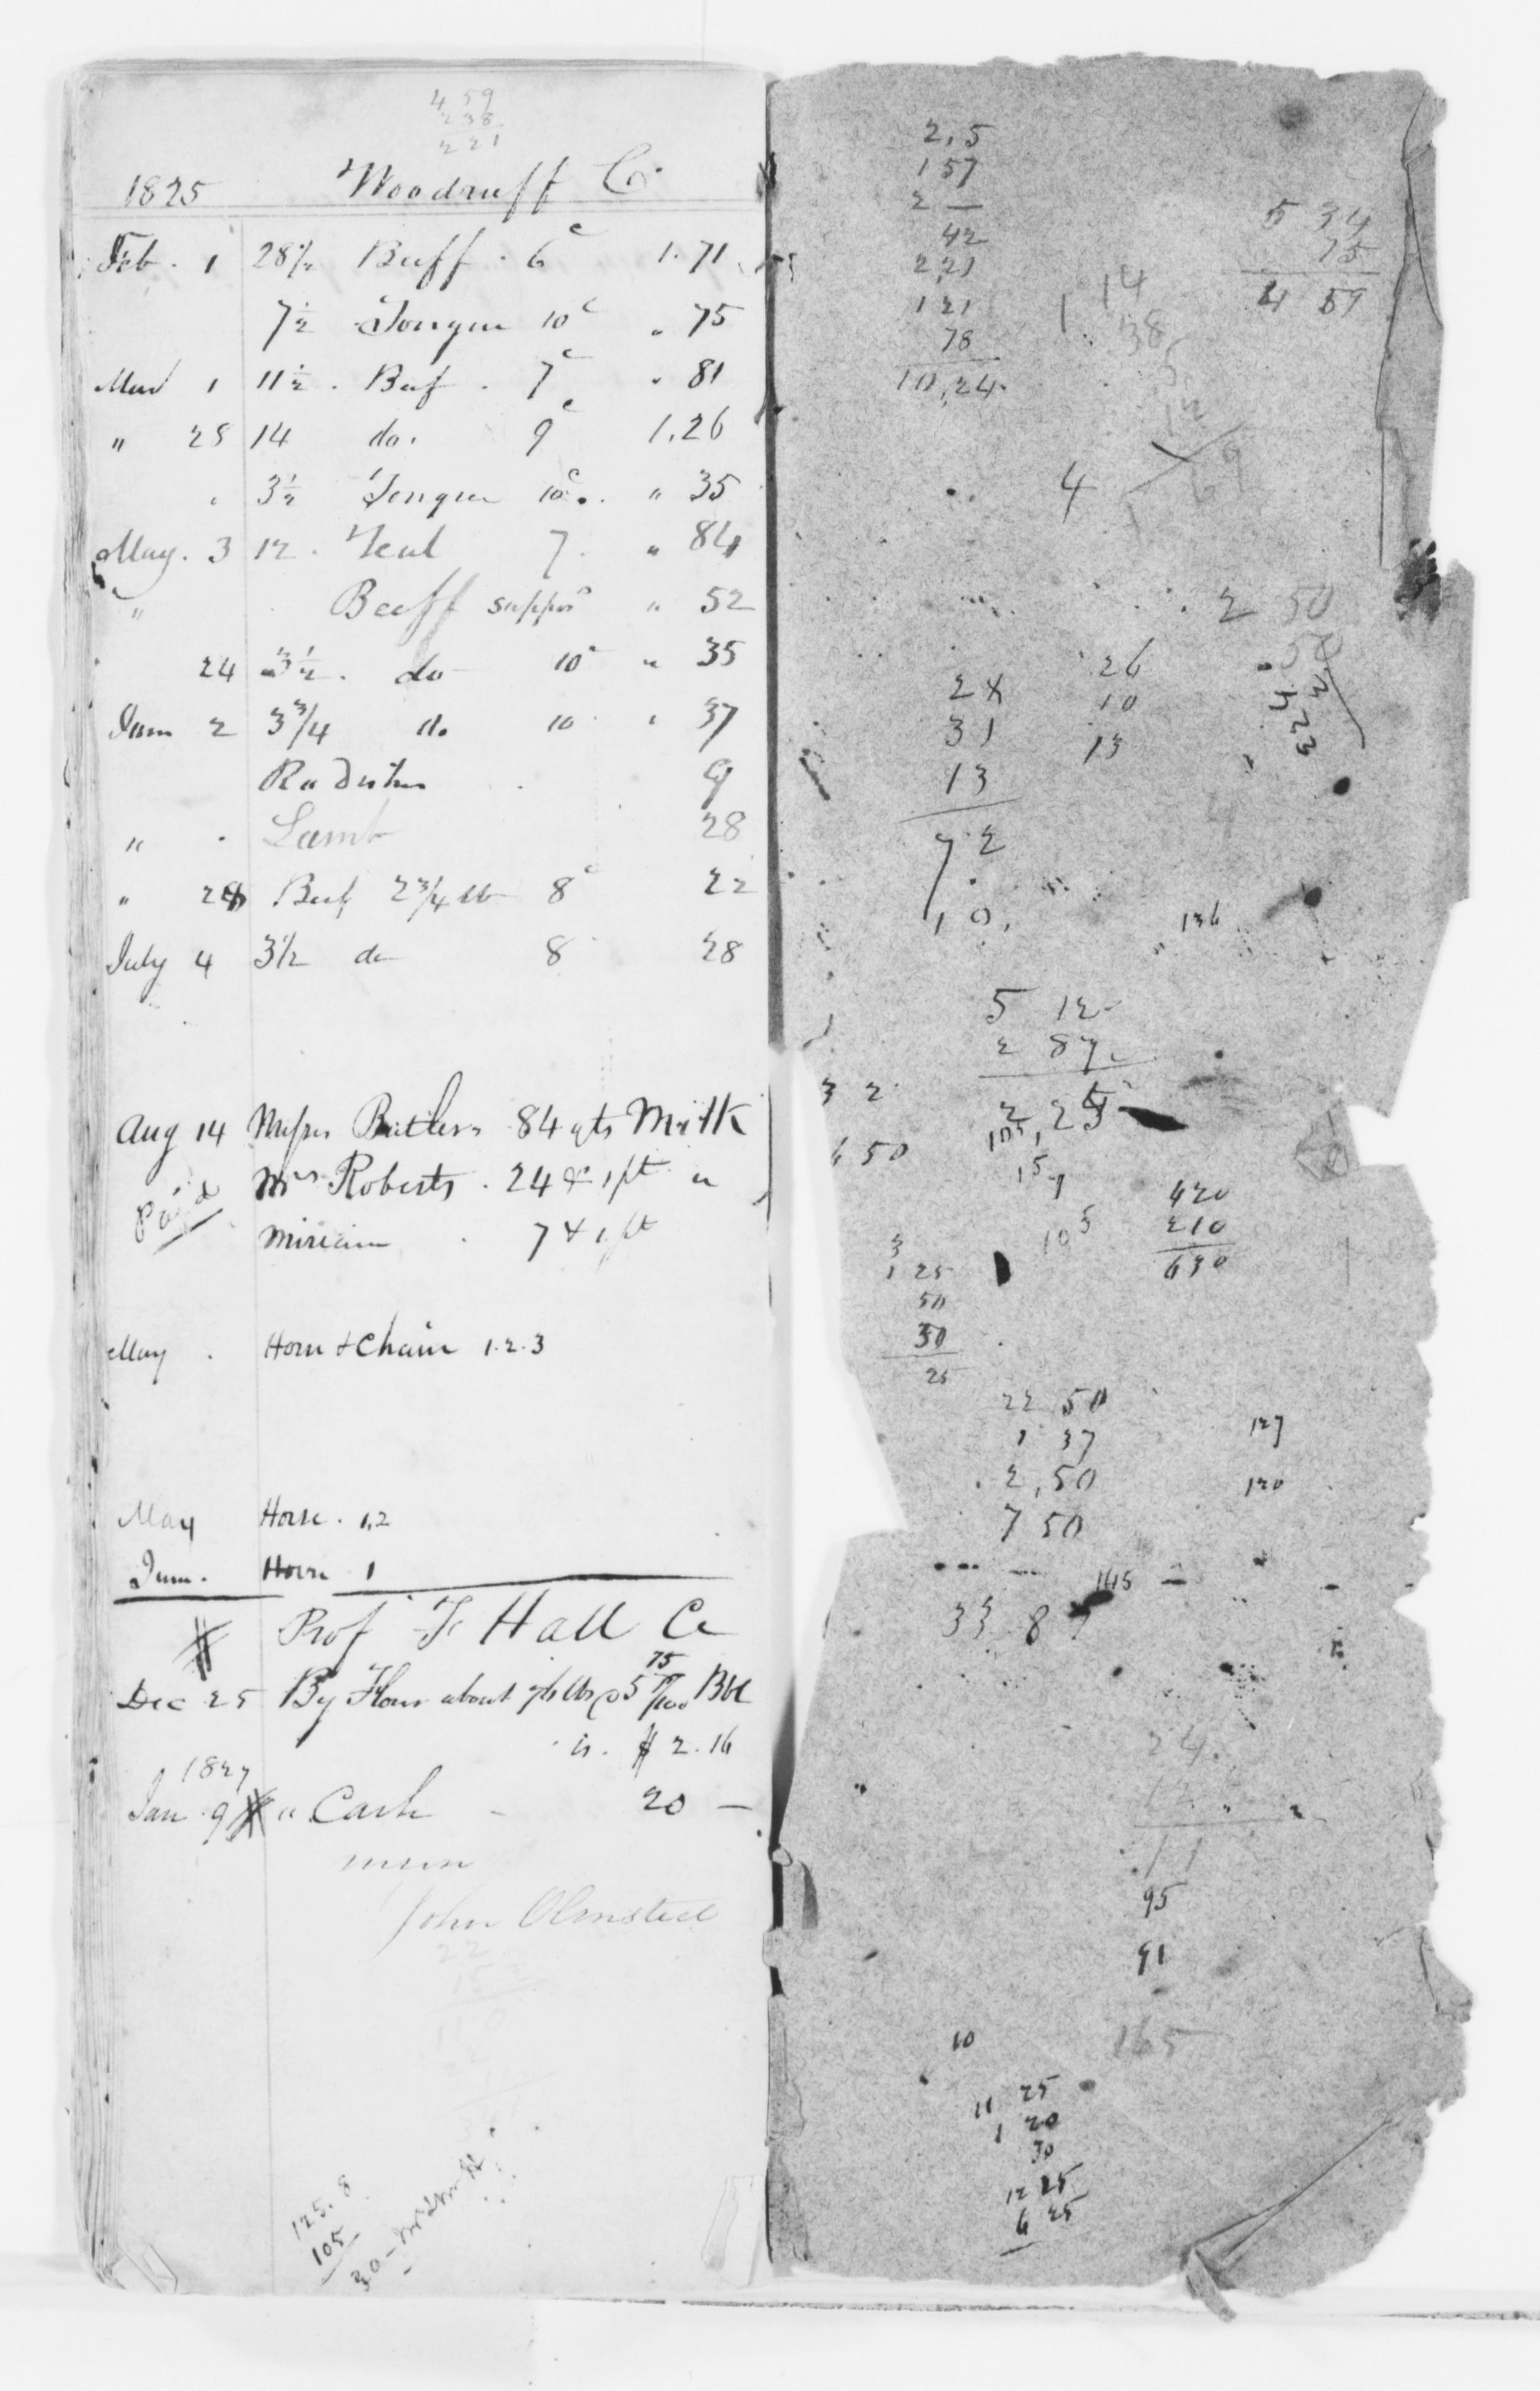 4 59
2 38
2 21
1825 Woodruff Cr
Feb. 1 28½ Beeff. 6c 1.71
7½ Tongue 10c " 75
Mar 1 11½. Beef. 7c " 81
" 25 14 do. 9c 1.26
" 3½ Tongue 10c. " 35
May. 3 12. Veal 7. " 84
" Beeff suppos " 52
24 3½. do 10c " 35
June 2 3¾ do 10 " 37
Radishes 9
" Lamb 28
" 24 Beef 2¾ lb 8c 22
July 4 3½ do 8 28
Aug 14 Messrs Butlers 84 qts Milk
Paid Mrs Roberts. 24 & 1 pt "
Miriam 7 & 1 pt
May. Horse & Chair 1.2.3
May Horse. 1,2
June. Horse 1
Prof F Hall Cr
75
Dec 25 By Flour about lbs @ 5 /100 Bbl
is. $ 2.16
1827
Jan 9 " Cash 20 —
John Olmsted
125.8
105
30
2,5
1 57
2 —
42
2,21
1 21
78
10,24
5 34
75
4 59
14
38
4
69
2 50
50
24
31
13
72
10.
26
10
13
3 23
136
5 12
2 87
2,25
3 2
6 50
15
105
420
210
630
3
1 25
50
50
25
22 50
1 37
2,50
7 50
127
120
145
33 87
24
12
11
95
91
10
165
11 25
1 20
30
12 25
6 25